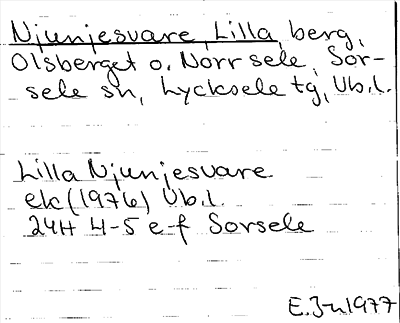 Njunjesvare, Lilla, berg,
Olsberget o. Norrsele, Sor-
sele sn, Lycksele tg, Vb.l.
Lilla Njunjesvare
ek (1976) Vb.l.
24H 4-5 e-f Sorsele
E.J-n 1977